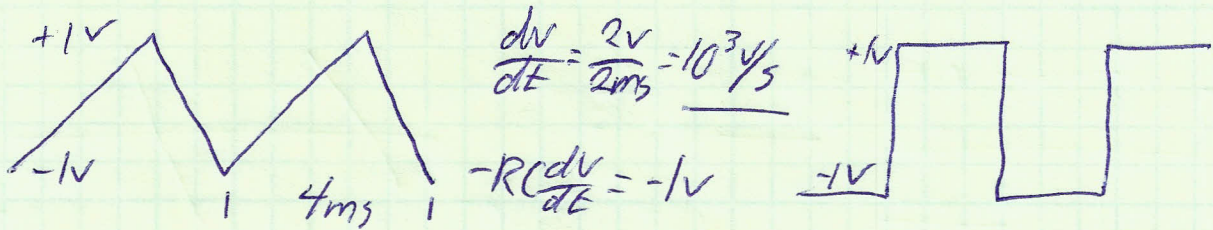 +1v
-1v
1 4ms 1
dv/dt = 2v/2ms = 10³ v/s
-RC dv/dt = -1v
+1v
-1v